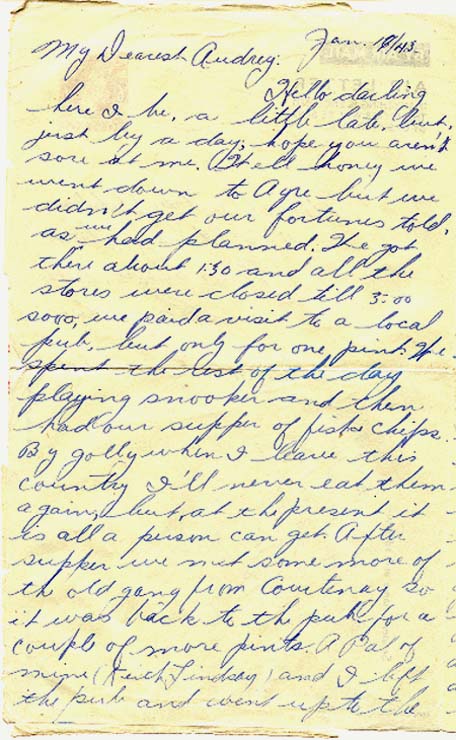 My Dearest Audrey. Jan. 18/43.
Hello darling
here I be, a little late, but,
just by a day, hope you aren't
sore at me. Well honey we
went down to Ayre but we
didn't get our fortunes told,
as we had planned. We got
there about 1:30 and all the
stores were closed till 5:00
sooo, we paid a visit to a local
pub, but only for one pint. We
spent the rest of the day
playing snooker and then
had our supper of fish & chips.
By golly when I leave this
country I'll never eat them
again, but, at the present it
is all a person can get. After
supper we met some more of
the old gang from Courtenay so
it was back to the pub for a
couple of more pints. A Pal of
mine (Keith Lindsay) and I left
the pub and went up to the